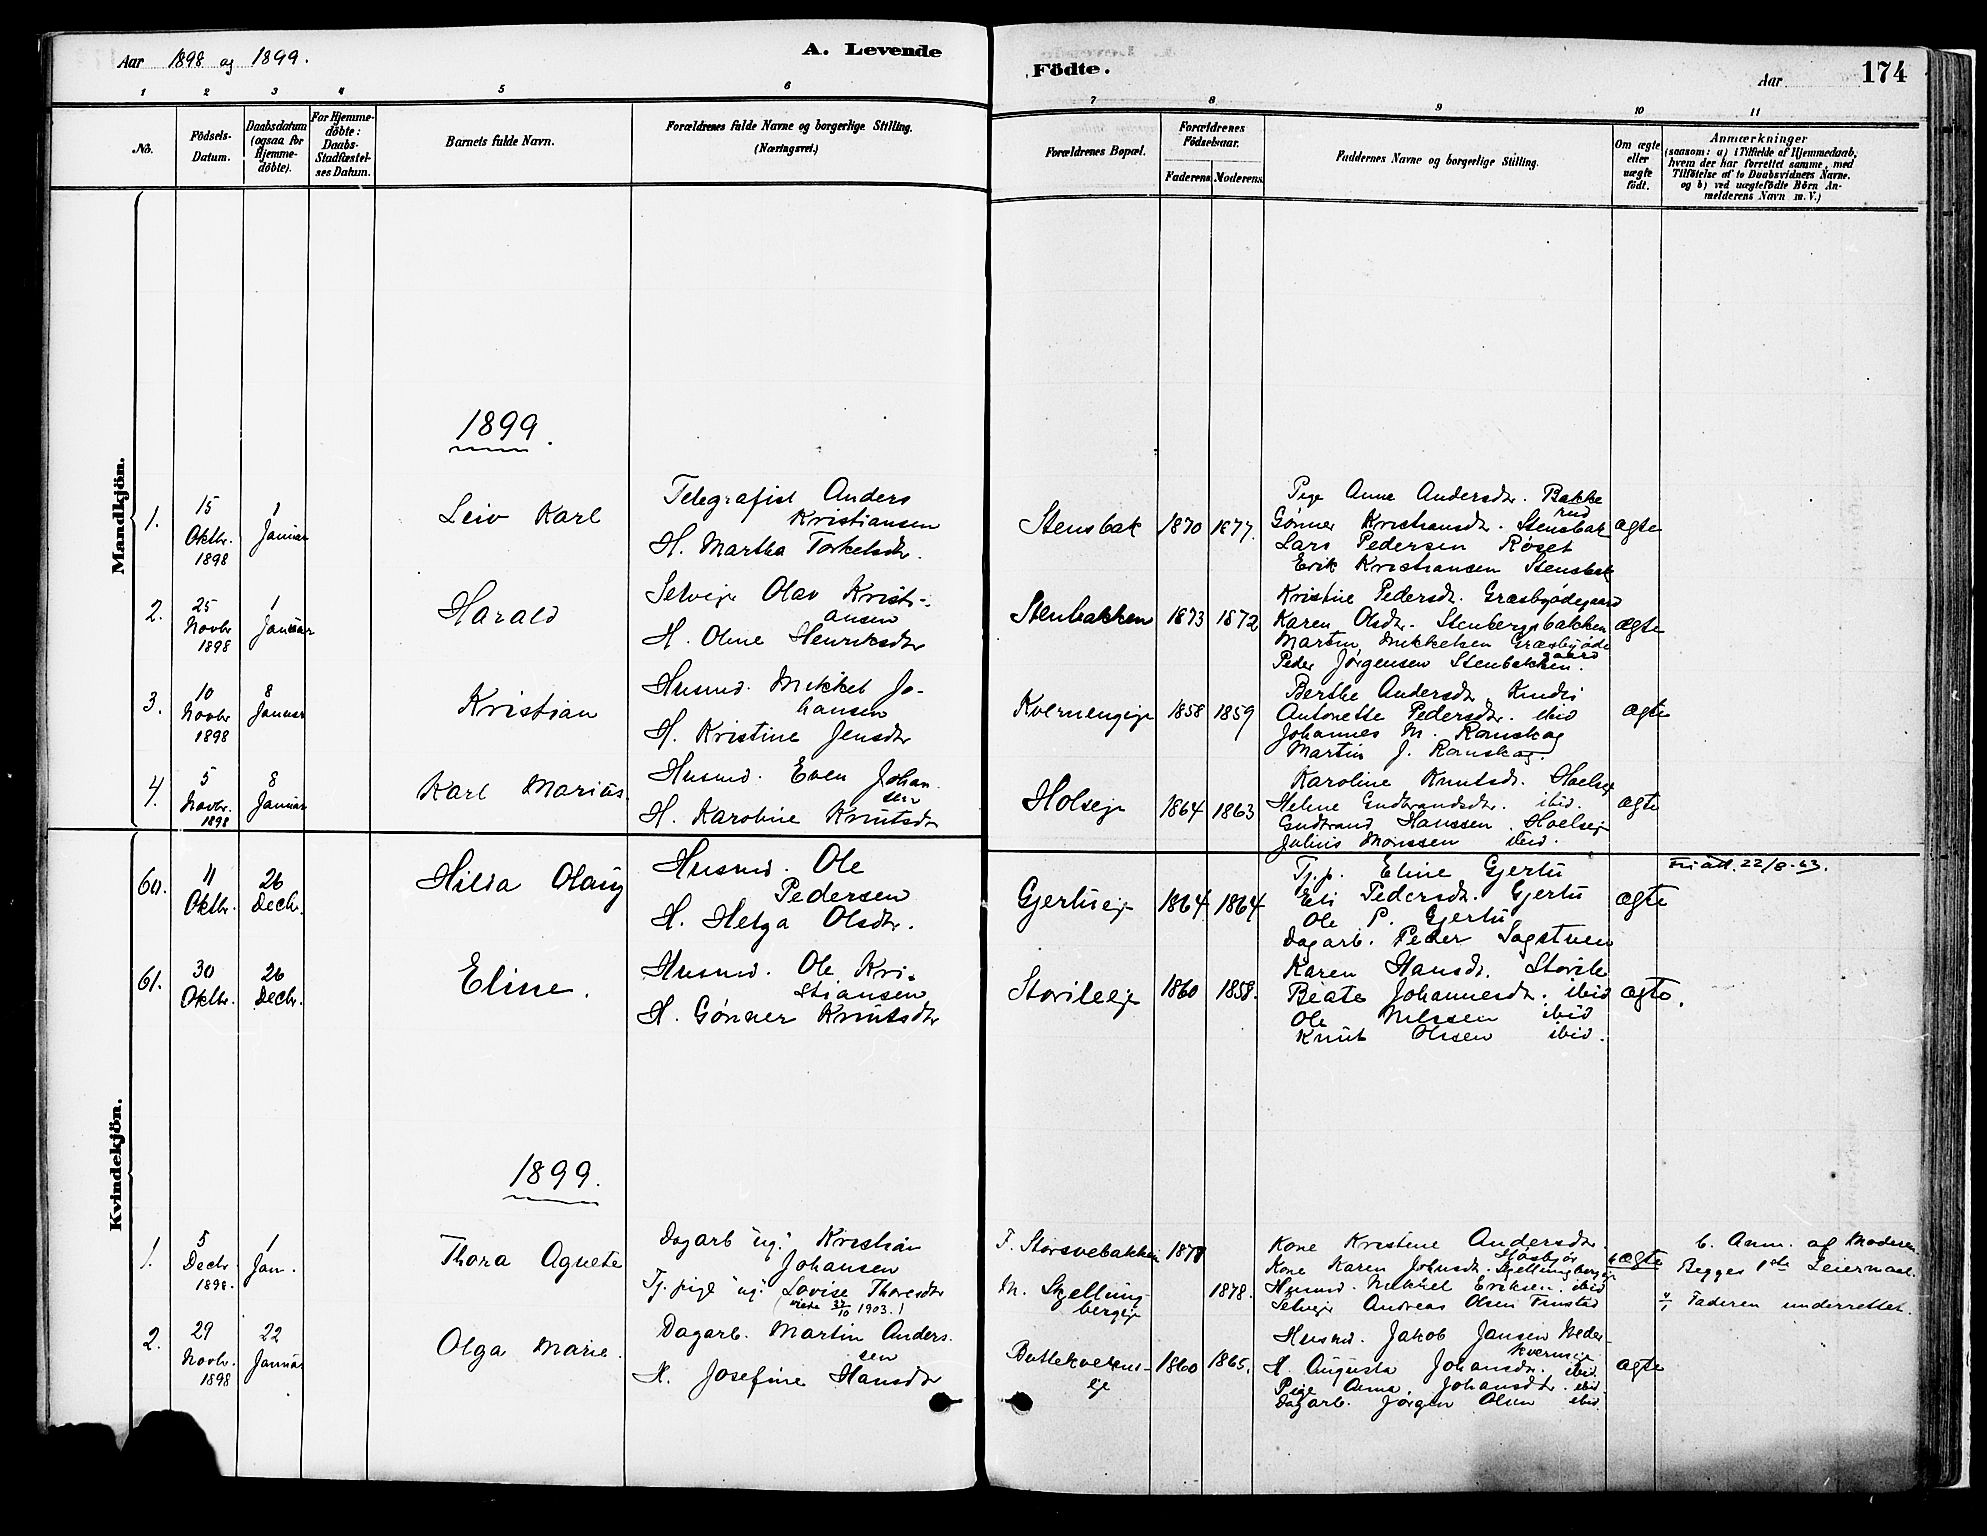 Aar 1898 og 1899.
A. Levende
Födte.
Aar
174
1 2 3 4 5 6 7 8 9 10 11
No.
Födsels-Datum.
Daabsdatum (ogsaa for Hjemmedöbte).
For Hjemmedöbte: Daabs-Stadfæstelses Datum.
Barnets fulde Navn.
Forældrenes fulde Navne og borgerlige Stilling.
(Næringsvei.)
Forældrenes Bopæl.
Forældrenes Födselsaar.
Faderens Moderens
Faddernes Navne og borgerlige Stilling.
Om ægte eller uægte födt.
Anmærkninger
(saasom: a) i Tilfælde af Hjemmedaab,
hvem der har forrettet samme, med
Tilföielse af to Daabsvidners Navne.
og b) ved uægtefödte Börn An-
melderens Navn m.V.)
Mandkjön.
1899.
1.
15 Oktbr. 1898
1 Januar
Leiv Karl
Telegrafist Anders
Kristiansen
H. Martha Torkelsdtr.
Stensbak
1870
1877.
Pige Anne Andersdtr. Bakke
rud
Gønner Kristiansdtr. Stensbak
Lars Pedersen Røset
Erik Kristiansen Stensbak
ægte
2.
25 Novbr 1898
1 Januar
Harald
Selveje Olav Kristi-
ansen
H. Oline Henriksdtr
Stenbakken
1873
1872
Kristine Pedersdtr. Græsbyødegaard
Karen Olsdtr. Stenbergsbakken
Martin Mikkelsen Græsbyøde
gaard
Peder Jørgensen Stenbakken.
ægte
3.
10 Novbr 1898
8 Januar
Kristian
Husmd. Mikkel Jo-
hansen
H. Kristine Jensdtr
Kvernengeje
1858
1859
Berthe Andersdtr.
Antonette Pedersdtr. ibid
Johannes M. Ramskog
Martin J. Ramskog.
ægte
4.
5 Novbr. 1898
8 Januar
Karl Marius.
Husmd. Even Johan
sen
H. Karoline Knutsdtr
Holseje
1864
1863
Karoline Knutsdtr. Hoelseje
Helene Gudbrandsdtr. ibid.
Gudbrand Hanssen. Hoelseje
Julius Monssen ibid.
ægte
Kvindekjön.
60.
11 Oktbr.
26 Decbr.
Hilda Olaug
Husmd. Ole
Pedersen
H. Helga Olsdtr.
Gjerluseje
1864
1864
Tj.p. Eline Gjerlu
Eli Pedersdtr. Gjerlu
Ole P. Gjerlu
Dagarb. Peder Sagstuen
ægte
Fri att. 22/8-63.
61.
30 Oktbr.
26 Decbr.
Eline.
Husmd. Ole Kri-
stiansen
H. Gønner Knutsdtr
Storileeje
1860
1858.
Karen Hansdtr. Storile
Beate Johannesdtr. ibid
Ole Nilssen ibid
Knut Olsen ibid.
ægte.
1899.
1.
5 Decbr 1898.
1 Jan.
Thora Agnete
Dagarb "ug." Kristian
Johansen
Tj. pige "ug." Lovise Thoresdtr
1903.)
F. Storsvebakken
M. Skjelling
bergeje
1878.
Kone Kristine Andersdtr.
Kone Karen Johnsdtr.
Husmd. Mikkel Eriksen. ibid
Selveje Andreas Olsen Finstad
uægte
b. Anm. af Moderen
Begges 1ste Leiermaal.
Faderen underrettet.
2.
29 Novbr. 1898
22 Januar
Olga Marie.
Dagarb. Martin Anders
sen
H. Josefine Hansdtr
Bøttekverns-
eje
1860
1865.
Husmd. Jakob Jansen Neder-
kverneje
H. Augusta Johansdtr. ibid.
Pige Anna Johansdtr. ibid.
Dagarb. Jørgen Olsen ibid.
ægte